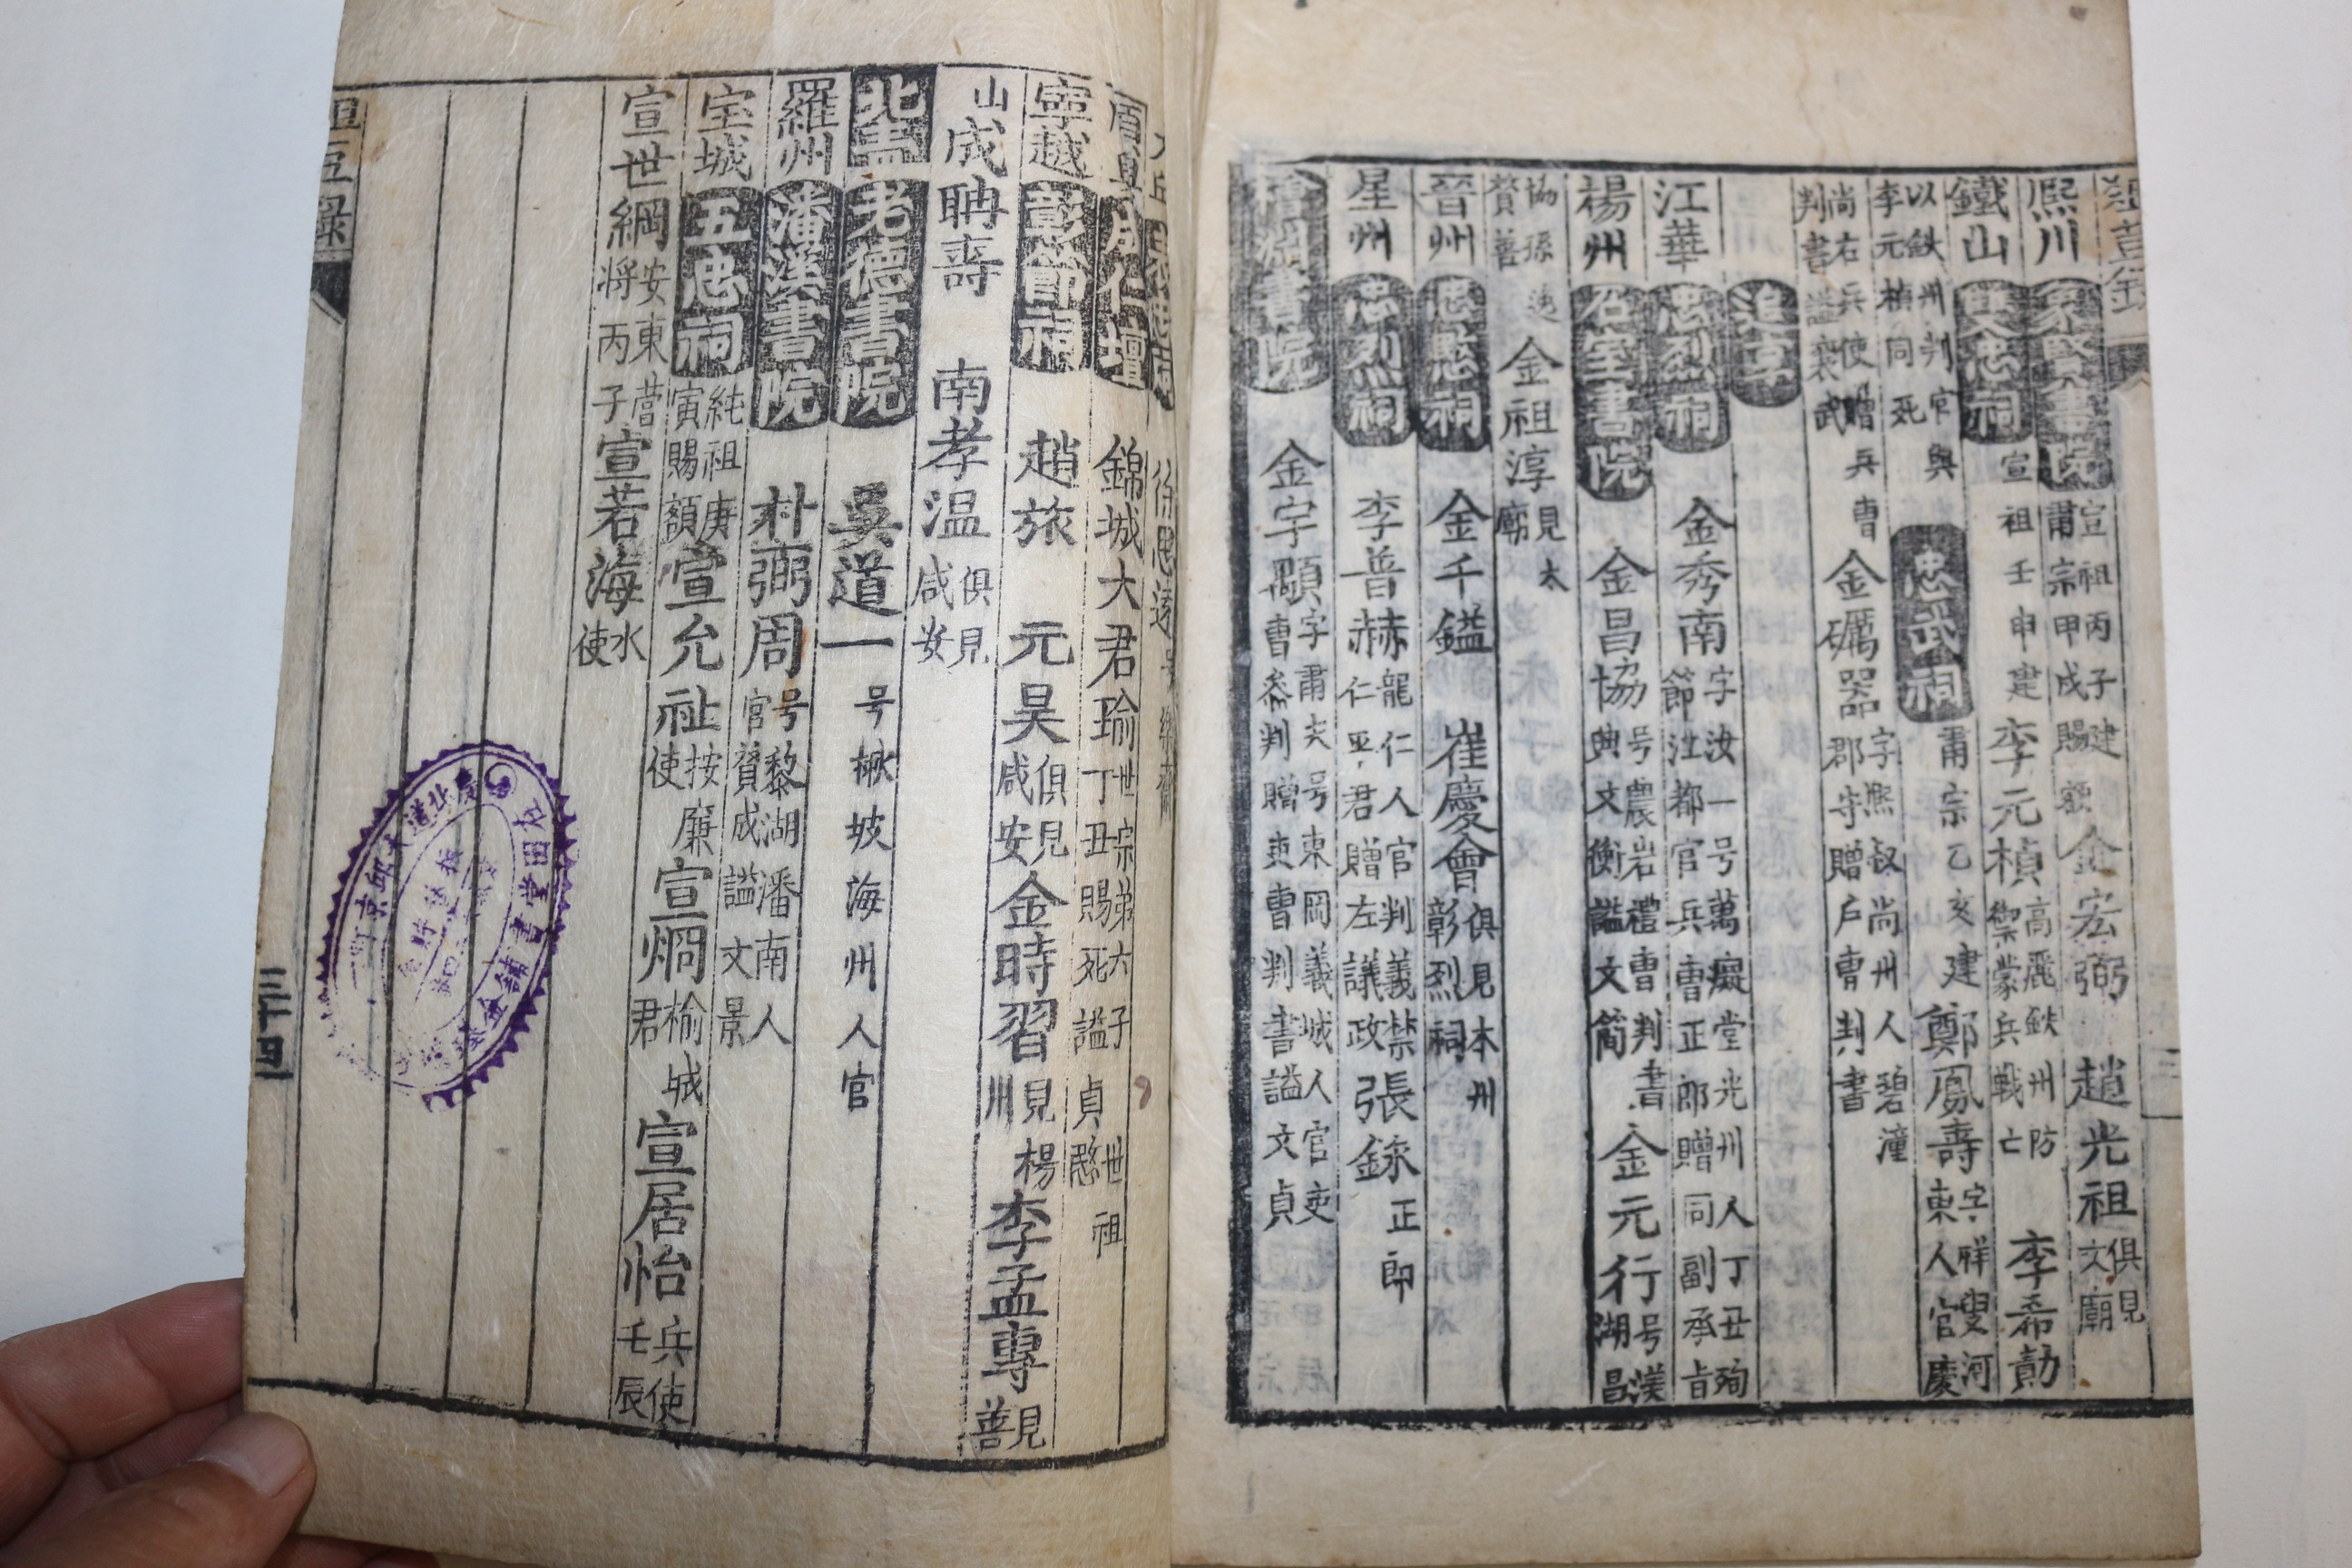 熙川 象賢書院 宣祖丙子建肅宗甲戌賜額 金宏弼 趙光祖 俱見文廟
鐵山 雙忠祠 宣祖壬申建 李元楨 高麗鉄州防禦蒙兵戰亡 李希勣
以鉄州判官與李元楨同死 忠武祠 肅宗乙亥建 鄭鳳壽 字祥叟河東人官慶
尚右兵使贈兵曹判書謚襄武 金礪器 字熙叔尚州人碧潼郡守贈戶曹判書
追享
江華 忠烈祠 金秀南 字汝一号萬癡堂光州人丁丑殉節江都官兵曹正郎贈同副承旨
楊州 石室書院 金昌協 号農岩禮曹判書典文衡謚文簡 金元行 号渼湖昌
協孫進贊善 金祖淳 見太廟
晉州 忠愍祠 金千鎰 崔慶會 俱見本州彰烈祠
星州 忠烈祠 李普赫 龍仁人官判義禁仁平君贈左議政 張錄 正郎
書院 金宇顒 字肅夫号東岡義城人官吏曹參判贈吏曹判書謚文貞
成仁壇 錦城大君瑜 世宗弟六子世祖丁丑賜死謚貞愍
寧越 彰節祠 趙旅 元昊 俱見咸安 金時習 見楊川 李孟專 見善
山 成聃壽 南孝温 俱見咸安
北靑 老德書院 吳道一 号楸坡海州人官
羅州 潘溪書院 朴弼周 号黎湖潘南人官贊成謚文景
宝城 五忠祠 純祖庚寅賜額 宣允祉 按廉使 宣炯 楡城君 宣居怡 兵使壬辰
宣世綱 安東營将丙子 宣若海 水使
三十四